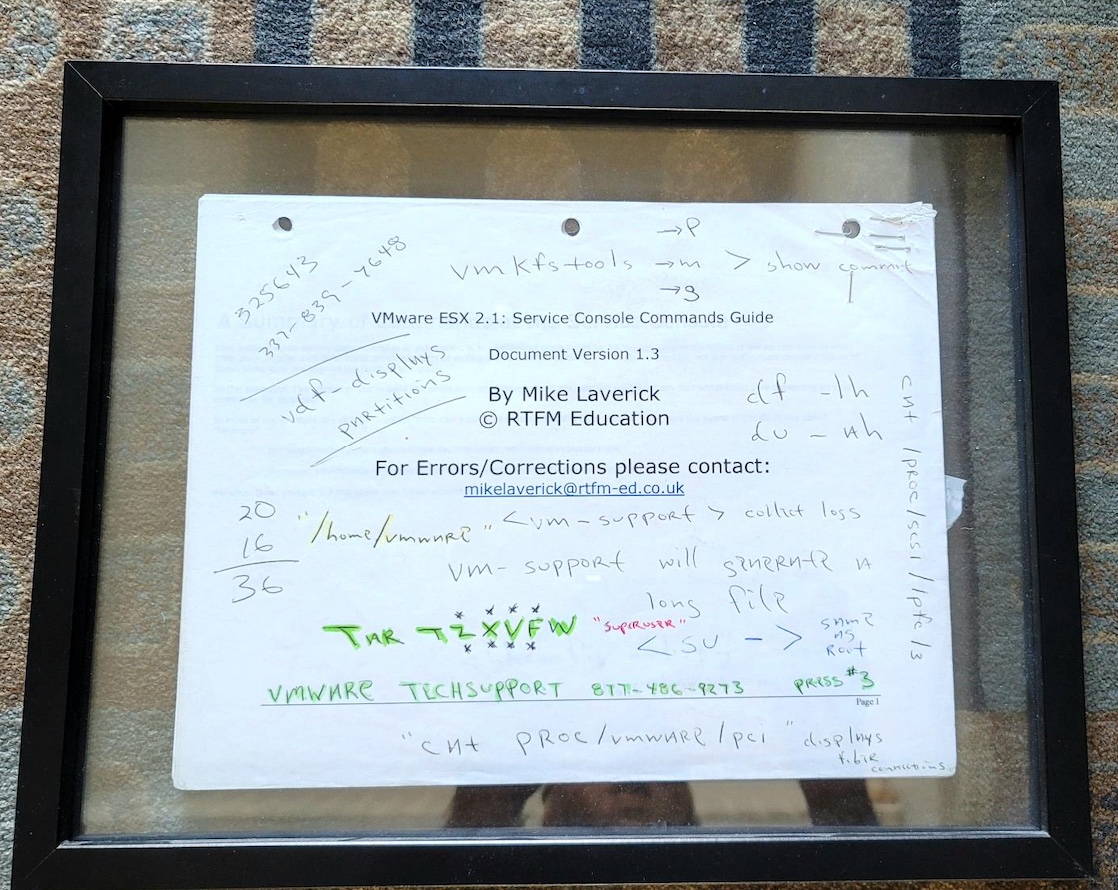 →P
vmkfstools →m > show commit
→g
325643
337-839-7648
VMware ESX 2.1: Service Console Commands Guide
Document Version 1.3
vdf - displays
partitions
By Mike Laverick
© RTFM Education
df -lh
du -Ah
cat /proc/scsi/lpfc/3
For Errors/Corrections please contact:
mikelaverick@rtfm-ed.co.uk
20
16
36
"/home/vmware" <vm-support> collect logs
vm-support will generate a
long file
TAR TZXVFW
"SUPERUSER"
<su -> same
as
Root
VMWARE TECHSUPPORT 877-486-9273 PRESS #3
Page 1
"cat PROC/vmware/pci" displays
fiber
connections